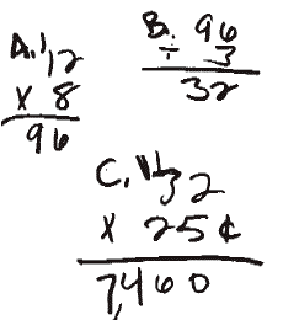 A. 12
x 8
96
B. 96
÷ 3
32
C. 32
x 25¢
7,460